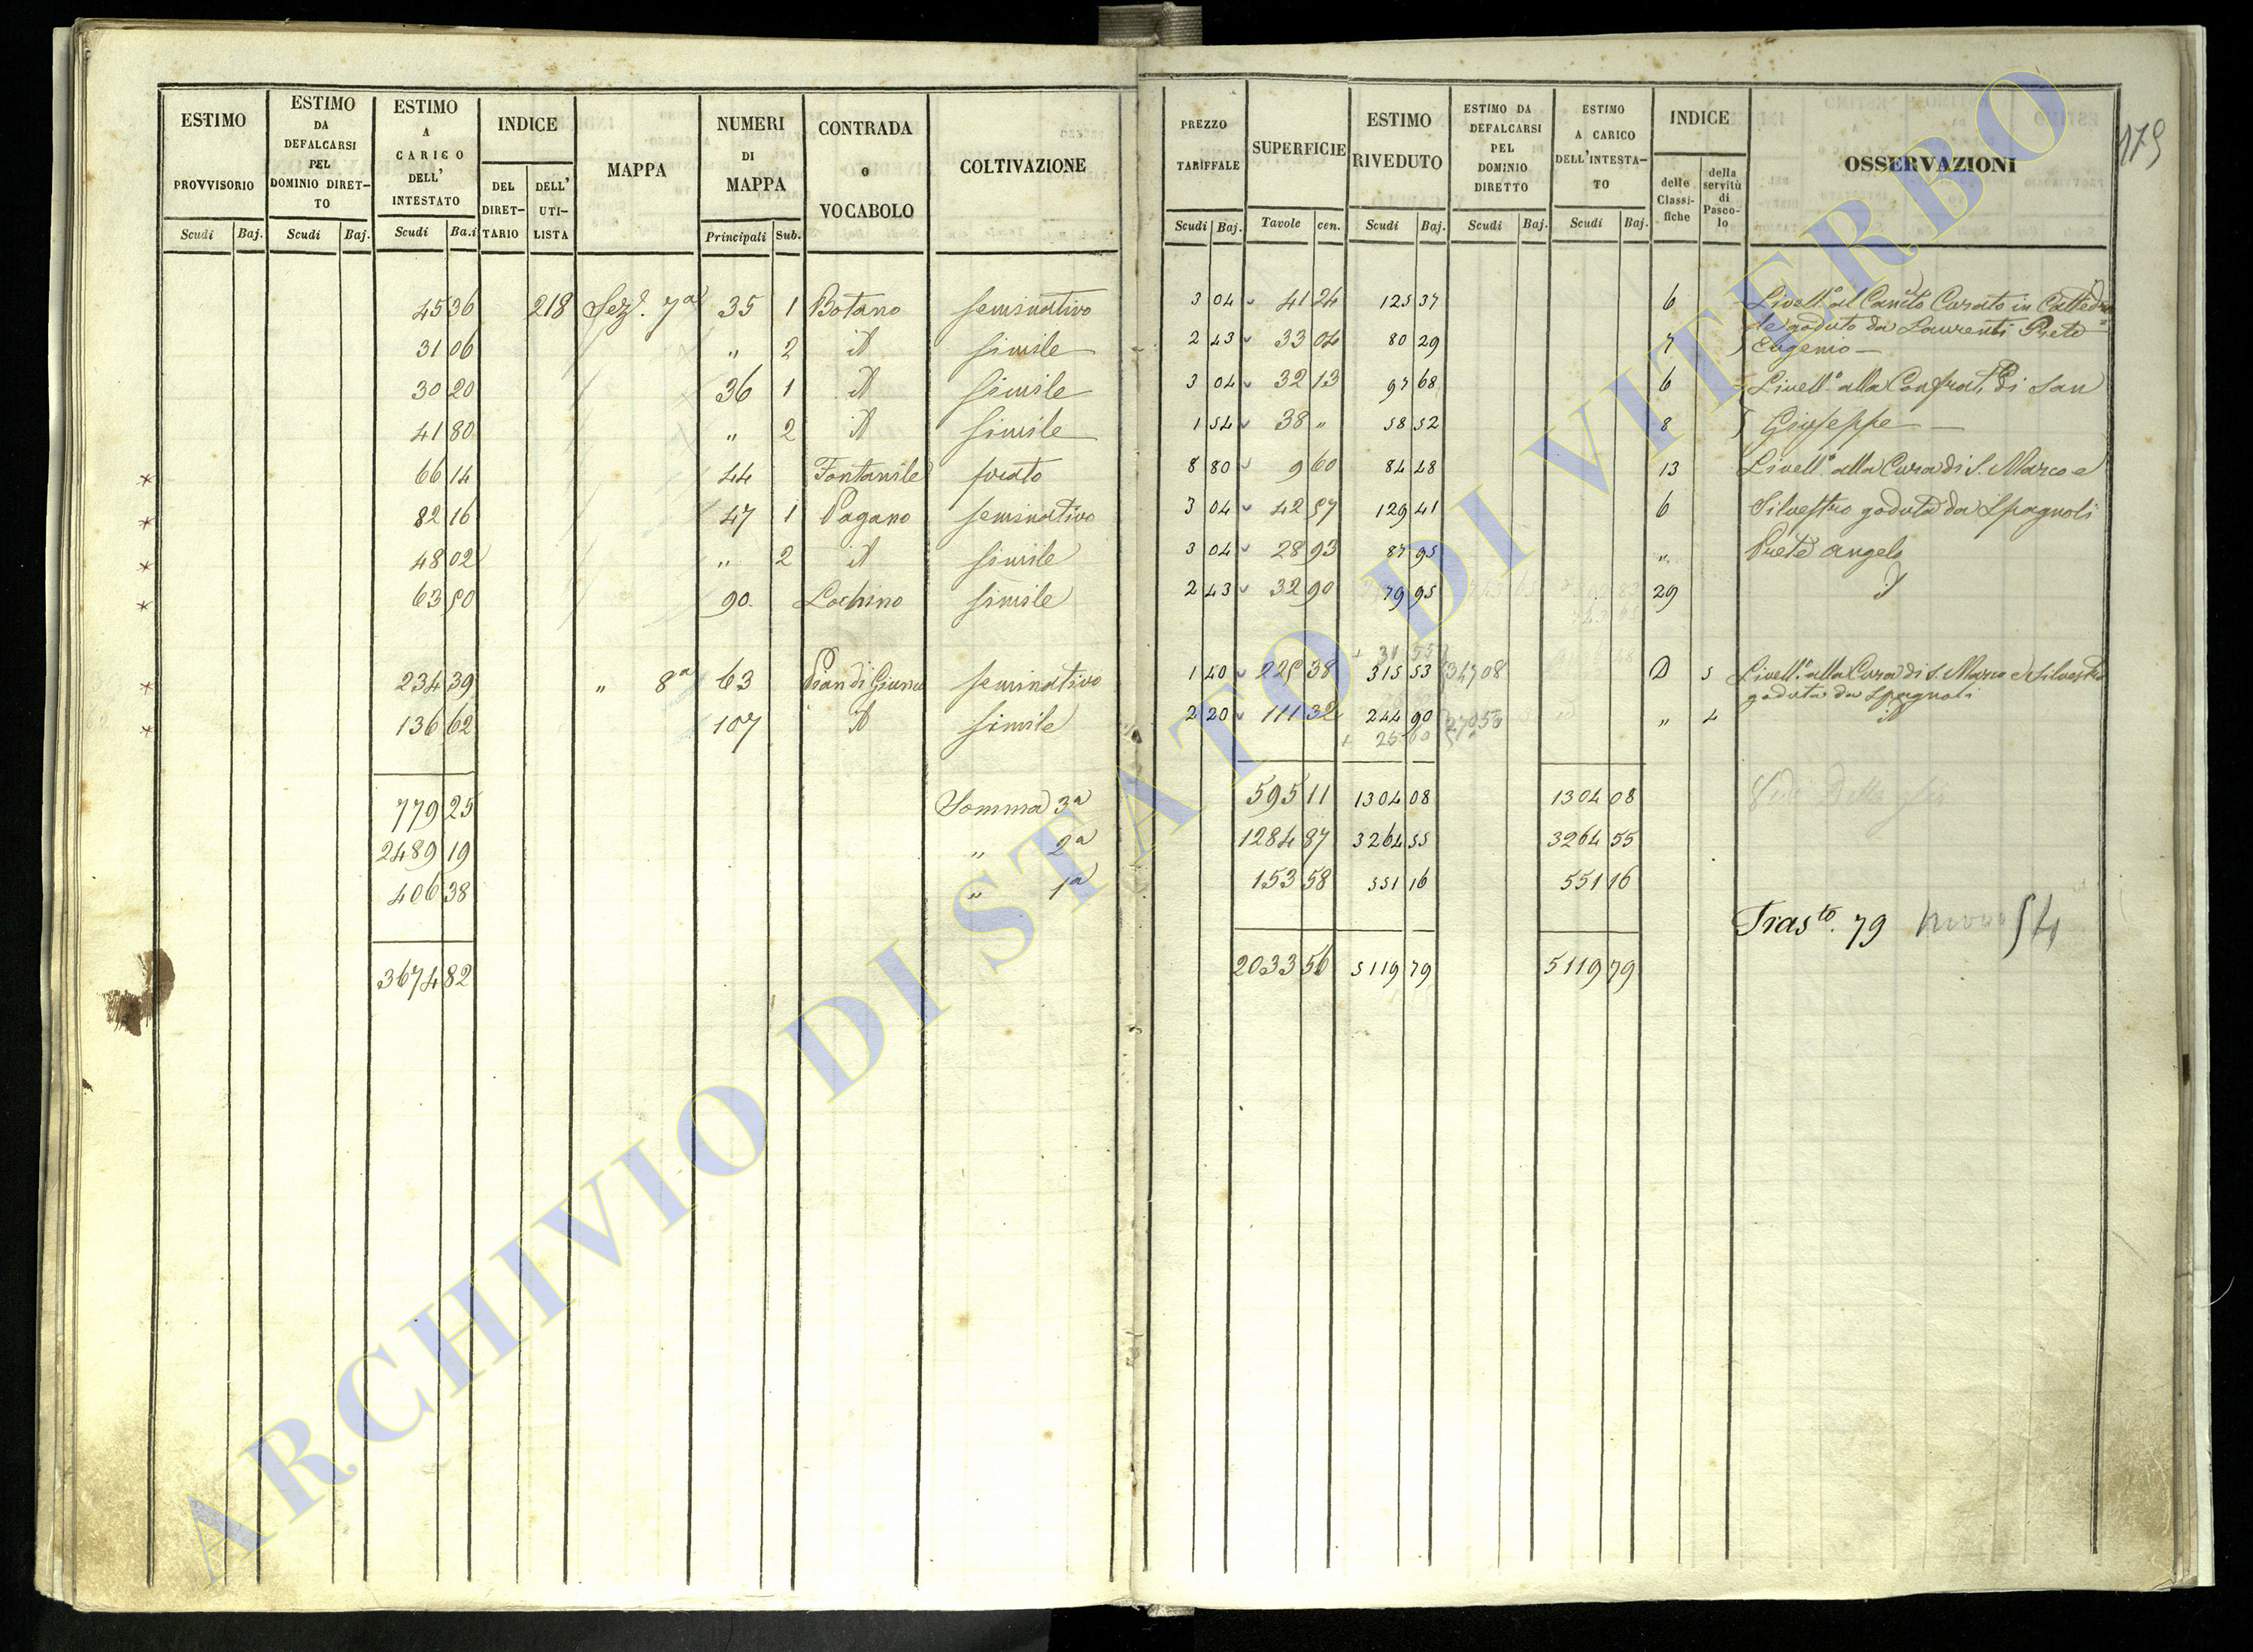 179
ESTIMO PROVVISORIO | ESTIMO DA DEFALCARSI PEL DOMINIO DIRETTO | ESTIMO A CARICO DELL' INTESTATO | INDICE | MAPPA | NUMERI DI MAPPA | CONTRADA O VOCABOLO | COLTIVAZIONE | PREZZO TARIFFALE | SUPERFICIE | ESTIMO RIVEDUTO | ESTIMO DA DEFALCARSI PEL DOMINIO DIRETTO | ESTIMO A CARICO DELL'INTESTATO | INDICE | OSSERVAZIONI
DEL DIRETTARIO | DELL' UTILISTA | delle Classifiche | della servitù di Pascolo
Scudi | Baj. | Scudi | Baj. | Scudi | Ba.i | Principali | Sub. | Scudi | Baj. | Tavole | cen. | Scudi | Baj. | Scudi | Baj. | Scudi | Baj.
45 36 | 218 | Sez.e 7a | 35 | 1 | Botano | seminativo | 3 04 | 41 24 | 125 37 | 6 | Livell.o al Can.to Curato in Cattedra
le goduto da Laurenti Prete
31 06 | " | 2 | id | simile | 2 43 | 33 04 | 80 29 | 7 | Eugenio
30 20 | 36 | 1 | id | simile | 3 04 | 32 13 | 97 68 | 6 | Livell.o alla Confrat.ta di San
41 80 | " | 2 | id | simile | 1 54 | 38 " | 58 52 | 8 | Giuseppe
* 66 14 | 44 | Fontanile | prato | 8 80 | 9 60 | 84 48 | 13 | Livell.o alla Cura di S. Marco e
* 82 16 | 47 | 1 | Pagano | seminativo | 3 04 | 42 57 | 129 41 | 6 | Silvestro goduta da Spagnoli
* 48 02 | " | 2 | id | simile | 3 04 | 28 93 | 87 95 | " | Prete Angelo
* 63 50 | 90 | Lochino | simile | 2 43 | 32 90 | 79 95 | 29
+ 31 55
* 234 39 | " 8a | 63 | Pian di Giunco | seminativo | 1 40 | 225 38 | 315 53 | 347 08 | D | 5 | Livell.o alla Cura di S. Marco e Silvestro
goduta da Spagnoli
* 136 62 | 107 | id | simile | 2 20 | 111 32 | 244 90 | 270 50 | " | 4 | id
+ 25 60
779 25 | Somma 3a | 595 11 | 1304 08 | 1304 08
2489 19 | " 2a | 1284 87 | 3264 55 | 3264 55
406 38 | " 1a | 153 58 | 551 16 | 551 16
Tras.to 79 54
3674 82 | 2033 56 | 5119 79 | 5119 79
ARCHIVIO DI STATO DI VITERBO